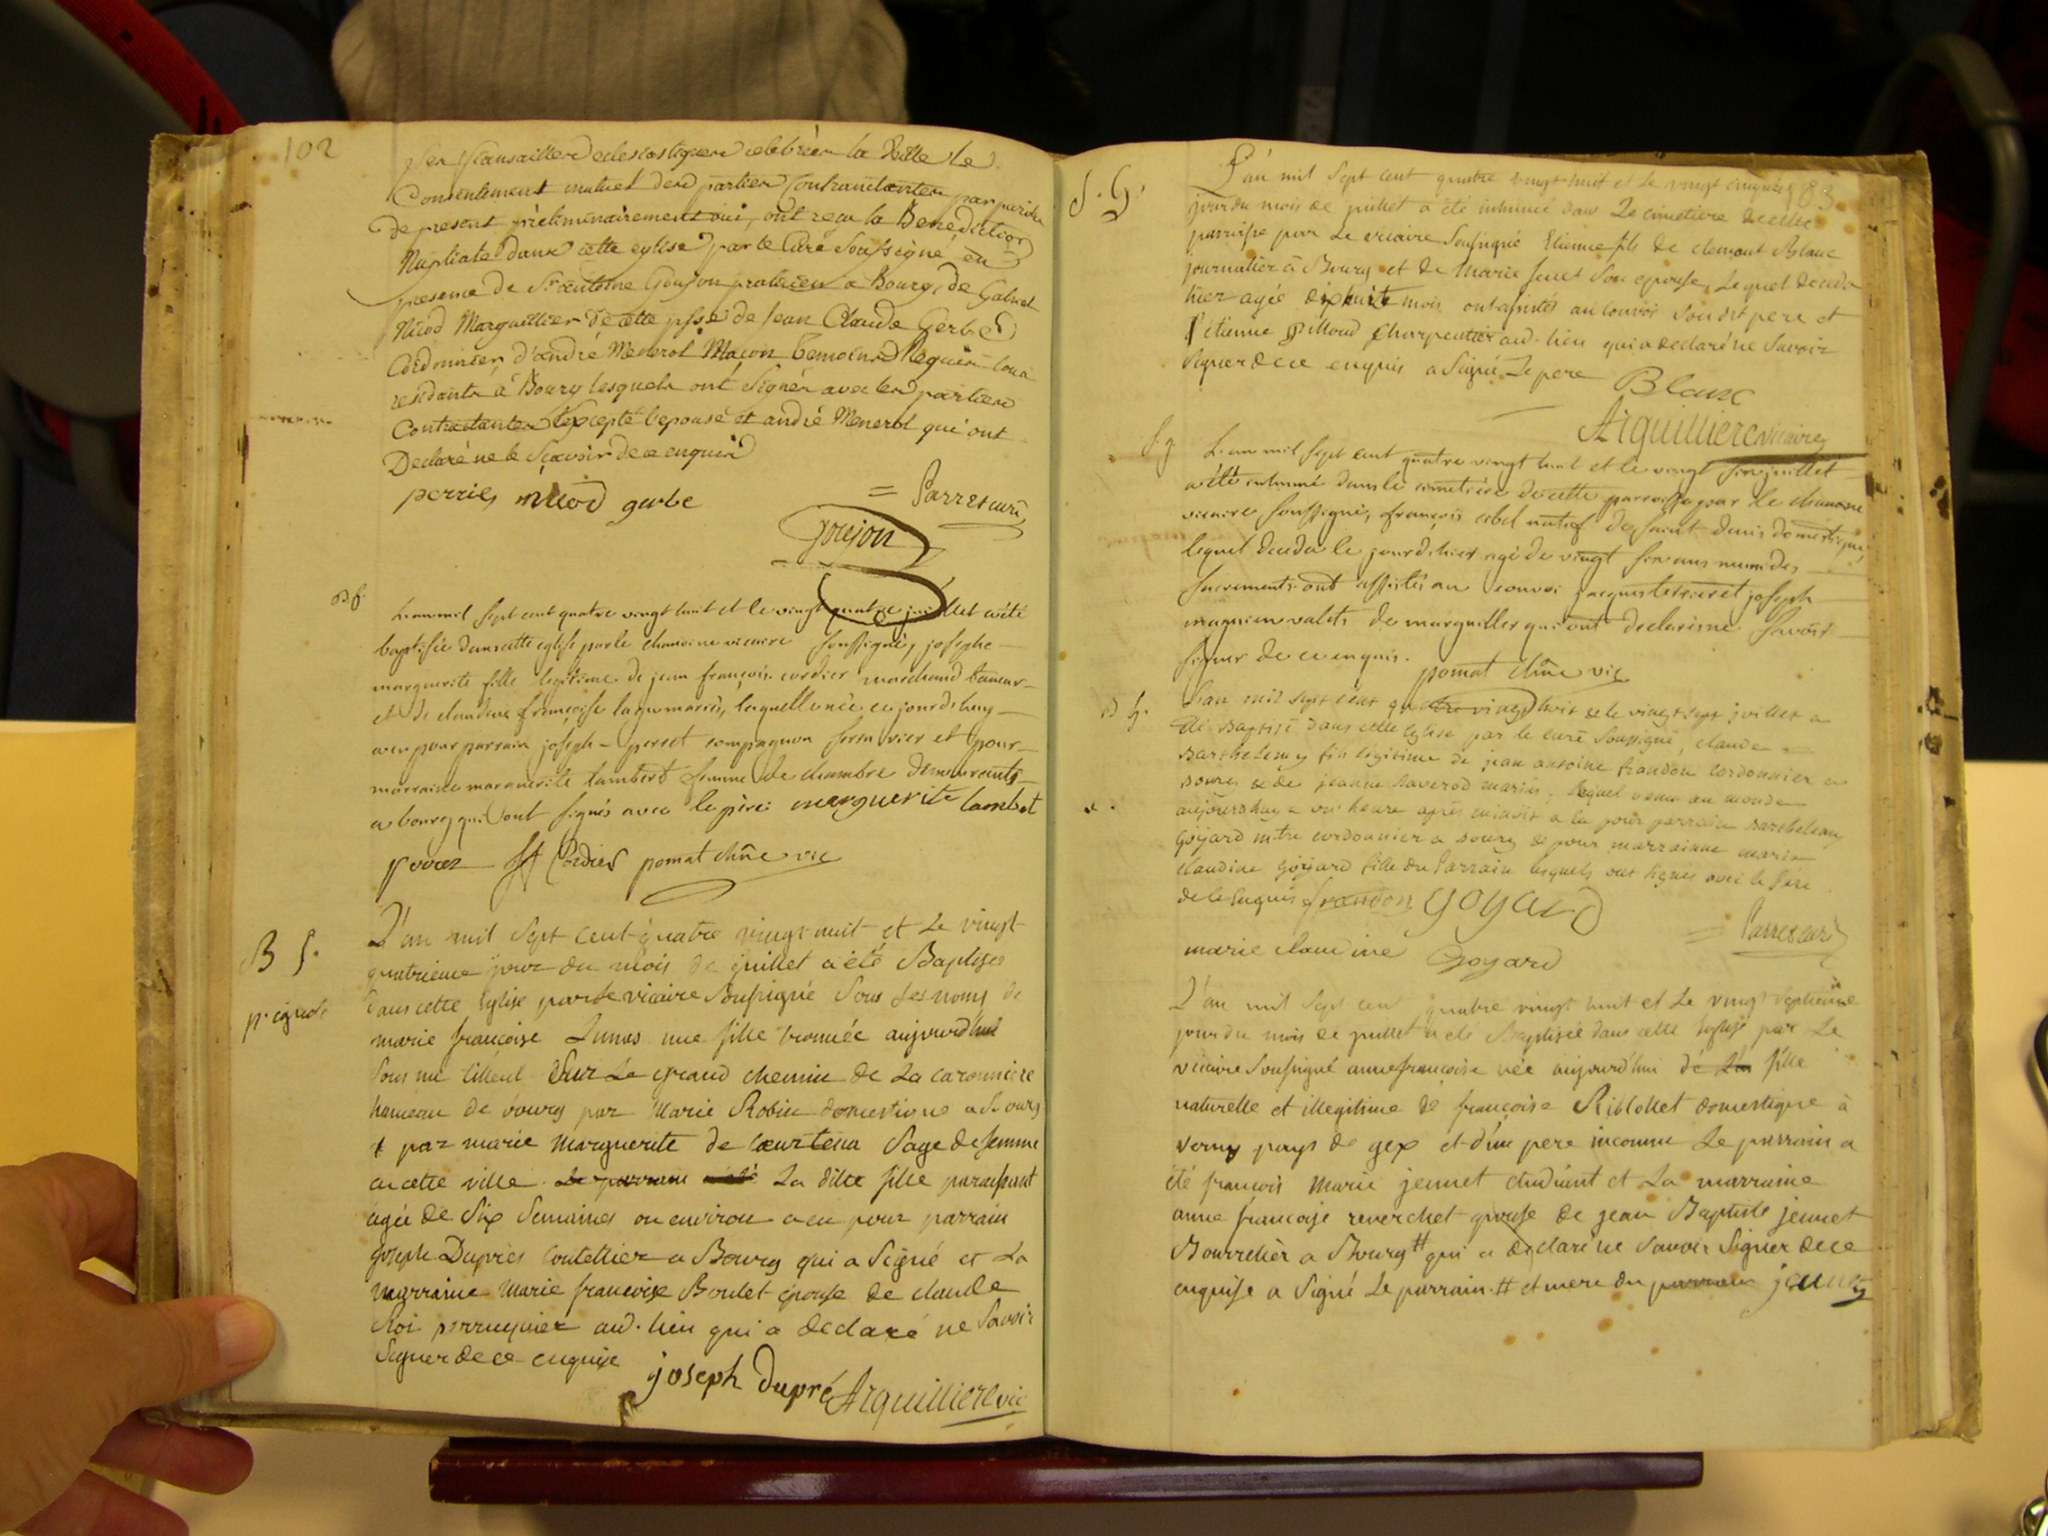 102
les fiancailles eclesiastiques celebrées la veille le
Consentement mutuel des parties Contractantes par paroles
de present préliminairement oui, ont reçu la Benediction
Nuptiale dans cette eglise par le Curé Soussigné en
presence de Sr antoine Goujon praticien a Bourg, de Gabriel
Nicod Marguillier de cette psse de Jean Claude Gerbe
Cordonnier d'andré Menerol Maçon temoins Requis tous
residants à Bourg lesquels ont signés avec les parties
Contractantes excepté l'epouse et andré Menerol qui ont
Declaré ne le sçavoir de ce enquis
perrier nicod gerbe
= Parret curé
Goujon
B f.
L'an mil sept cent quatre vingt huit et le vingt quatre juillet a été
baptisée dans cette eglise par le chanoine vicaire soussigné, josephe
marguerite fille legitime de jean françois cordier marchand taneur
et de claudine françoise mariés, laquelle née ce jourdhuy
a eu pour parrain joseph perret compagnon et pour
marraine marguerite lambert femme de chambre demeurants
a bourg qui ont signés avec le père marguerite lambet
Cordier pomat chne vic
B f.
L'an mil sept cent quatre vingt huit et le vingt
quatrieme jour du mois de juillet a été Baptisée
dans cette Eglise par le vicaire soussigné sous les noms de
marie françoise Lunas une fille trouvée aujourd'hui
sous un tilleul sur le grand chemin de la caronniere
hameau de bourg par Marie Robin domestique a Bourg
& par marie Marguerite de Courtena sage defemme
en cette ville. Le parrain a été La dite fille paraissant
agée de Six Semaines ou environ a eu pour parrain
joseph Dupré coutellier a Bourg qui a Signé et La
marraine Marie françoise Boulet épouse de claude
Roi perruquier aud. lieu qui a declaré ne Savoir
Signer de ce enquise
joseph dupré Arquilliere vic
183
S. G.
L'an mil sept cent quatre vingt huit et le vingt cinquieme
jour du mois de juillet a été inhumé dans le cimetiere de cette
parroisse par le vicaire soussigné Etienne fils de clemant Blanc
journalier à Bourg et de Marie son epouse, Lequel decedé
hier agée dixhuit mois ont assistés au convoi son dit pere et
etienne pilloud charpentier aud. lieu qui a declaré ne savoir
signer de ce enquis a signé Le pere Blanc
Arquilliere vicaire
S g
L'an mil sept cent quatre vingt huit et le vingt six juillet
a été inhumé dans le cimetière de cette parroisse par le chanoine
vicaire soussigné, françois natif de saint denis domestique,
lequel deceda le jour dhier agé de vingt six ans muni des
sacrements ont assistés au convoi jacques et joseph
valets de marguiller qui ont declarés ne savoir
signer de ce enquis.
pomat chne vic
B g.
L'an mil sept cent quatre vingt huit & le vingt sept juillet a
été Baptisé dans cette Eglise par le curé soussigné, claude
Barthelemy fils legitime de jean antoine frandon cordonnier a
Bourg & de jeanne mariés, lequel venu au monde
aujourdhuy a une heure après minuit a eu pour parrain Barthelemy
Goyard mtre cordonnier a Bourg & pour marraine marie
claudine Goyard fille du Parrain lesquels ont signés avec le père
de ce Enquis frandon Goyard
= Parret curé
marie claudine Goyard
L'an mil sept cent quatre vingt huit et le vingt septieme
jour du mois de juillet a été Baptisée dans cette Eglise par Le
vicaire soussigné anne françoise née aujourd'hui de fille
naturelle et illegitime de françoise Riblollet domestique à
verny pays de gex et d'un pere inconnu Le parrain a
été françois Marie jeunet etudiant et La marraine
anne françoise reverchet épouse de jean Baptiste jeunet
Bourrelier a Bourg # qui a déclaré ne savoir signer de ce
enquise a Signé Le parrain # et mere du parrain jeunet